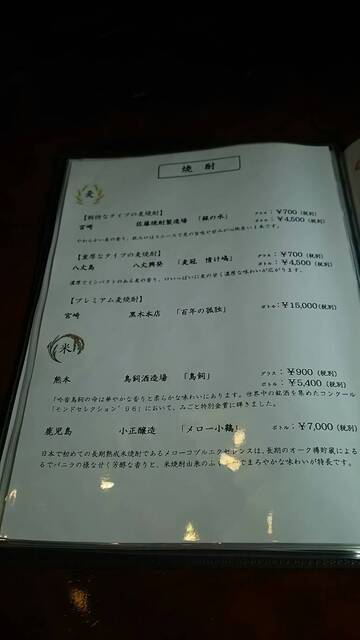 焼酎
麦
【軽快なタイプの麦焼酎】
宮崎 佐藤焼酎製造場 「銀の水」 グラス：￥700（税別）
ボトル：￥4,500（税別）
やわらかい麦の香り、飲み口は
【重厚なタイプの麦焼酎】
八丈島 八丈興発 「麦冠 情け嶋」 グラス：￥700（税別）
ボトル：￥4,500（税別）
濃厚でインパクトのある麦の香り、口いっぱいに麦の甘く濃厚な味わいが広がります。
【プレミアム麦焼酎】
宮崎 黒木本店 「百年の孤独」 ボトル：￥15,000（税別）
米
熊本 鳥飼酒造場 「鳥飼」 グラス：￥900（税別）
ボトル：￥5,400（税別）
「吟香鳥飼の命は華やかな香りと柔らかな味わいにあります。世界中の銘酒を集めたコンクール
「モンドセレクション'96」において、みごと特別金賞に輝きました。
鹿児島 小正醸造 「メロー小鶴」 ボトル：￥7,000（税別）
日本で初めての長期熟成米焼酎であるメローコヅルエクセレンスは、長期のオーク樽貯蔵による
るでバニラの様な甘く芳醇な香りと、米焼酎由来のふ でまろやかな味わいが特長です。